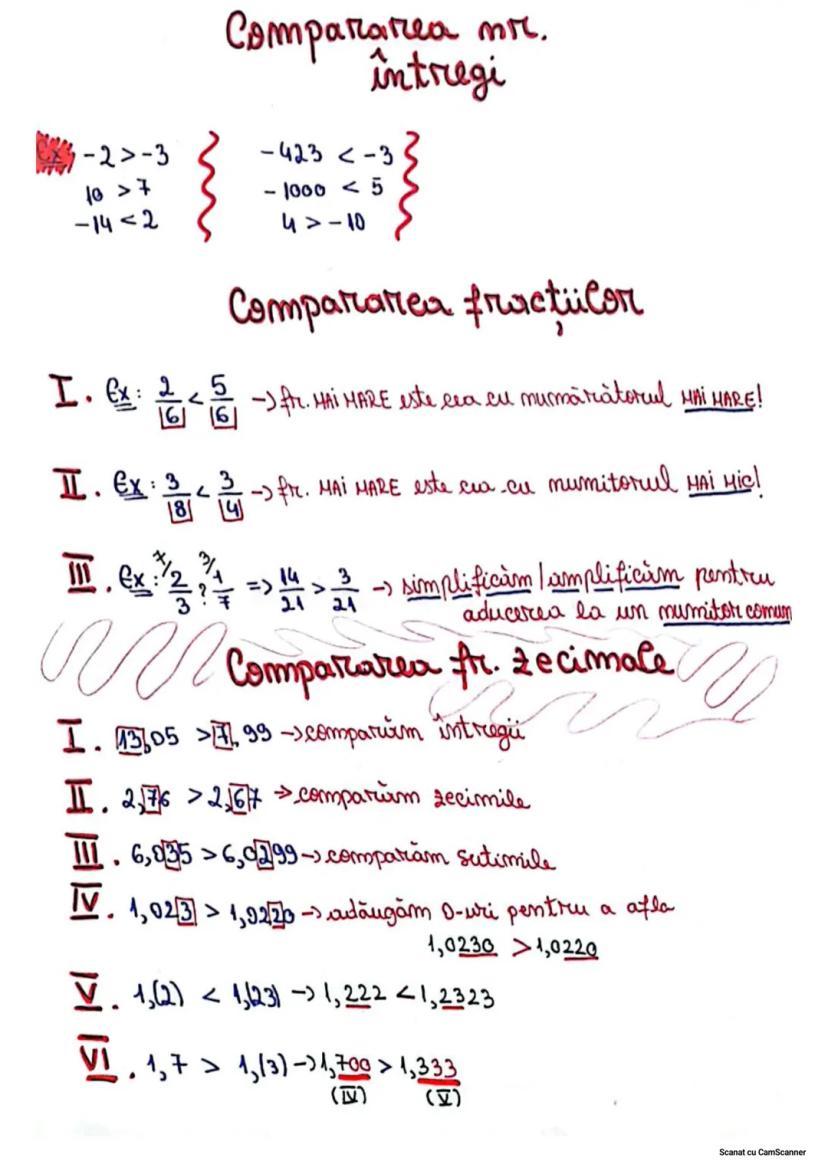 Compararea nr.
întregi
Ex -2 > -3
10 > 7
-14 < 2
-423 < -3
-1000 < 5
4 > -10
Compararea fracțiilor
I. Ex: 2/6 < 5/6 -> fr. MAI MARE este cea cu numărătorul MAI MARE!
II. Ex: 3/8 < 3/4 -> fr. MAI MARE este cea cu numitorul MAI MIC!
III. Ex: 7/ 2/3 ? 3/ 1/7 => 14/21 > 3/21 -> simplificăm/amplificăm pentru
aducerea la un numitor comun
Compararea fr. zecimale
I. 13,05 > 7,99 -> comparăm întregii
II. 2,76 > 2,67 -> comparăm zecimile
III. 6,035 > 6,0299 -> comparăm sutimile
IV. 1,023 > 1,0220 -> adăugăm 0-uri pentru a afla
1,0230 > 1,0220
V. 1,(2) < 1,(23) -> 1,222 < 1,2323
VI. 1,7 > 1,(3) -> 1,700 > 1,333
(IV) (V)
Scanat cu CamScanner